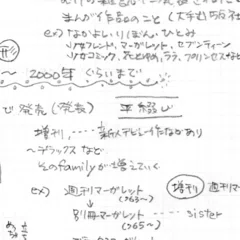 まんが作品のこと(大手出版社
ex) なかよし、りぼん、ひとみ
少女フレンド、マーガレット、セブンティーン
少女コミック、花とゆめ、ララ、プリンセスなど
〜 2000年 ぐらいまで
で 発売(発表) 平綴じ
増刊, ---- 新人デビュー作などあり
〜デラックス など
そのfamilyが増えていく。
ex) 週刊マーガレット 増刊 週刊マ
(263〜)
↓
別冊マーガレット ---- sister
(265〜)